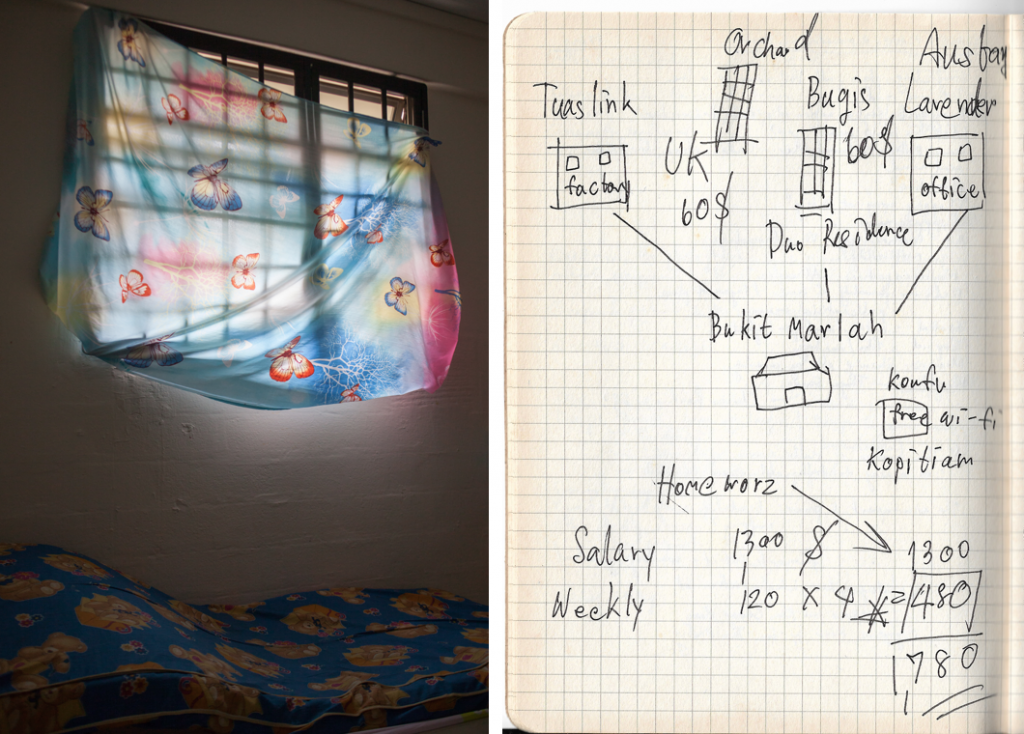 Orchard
Ausbay
Tuas link
Bugis
Lavender
60$
UK
factory
office
60$
Duo Residence
Bukit Mariah
koufu
free wi-fi
Kopitiam
Homeworz
Salary 1300 $ 1300
Weekly 120 x 4 = 480
1,780